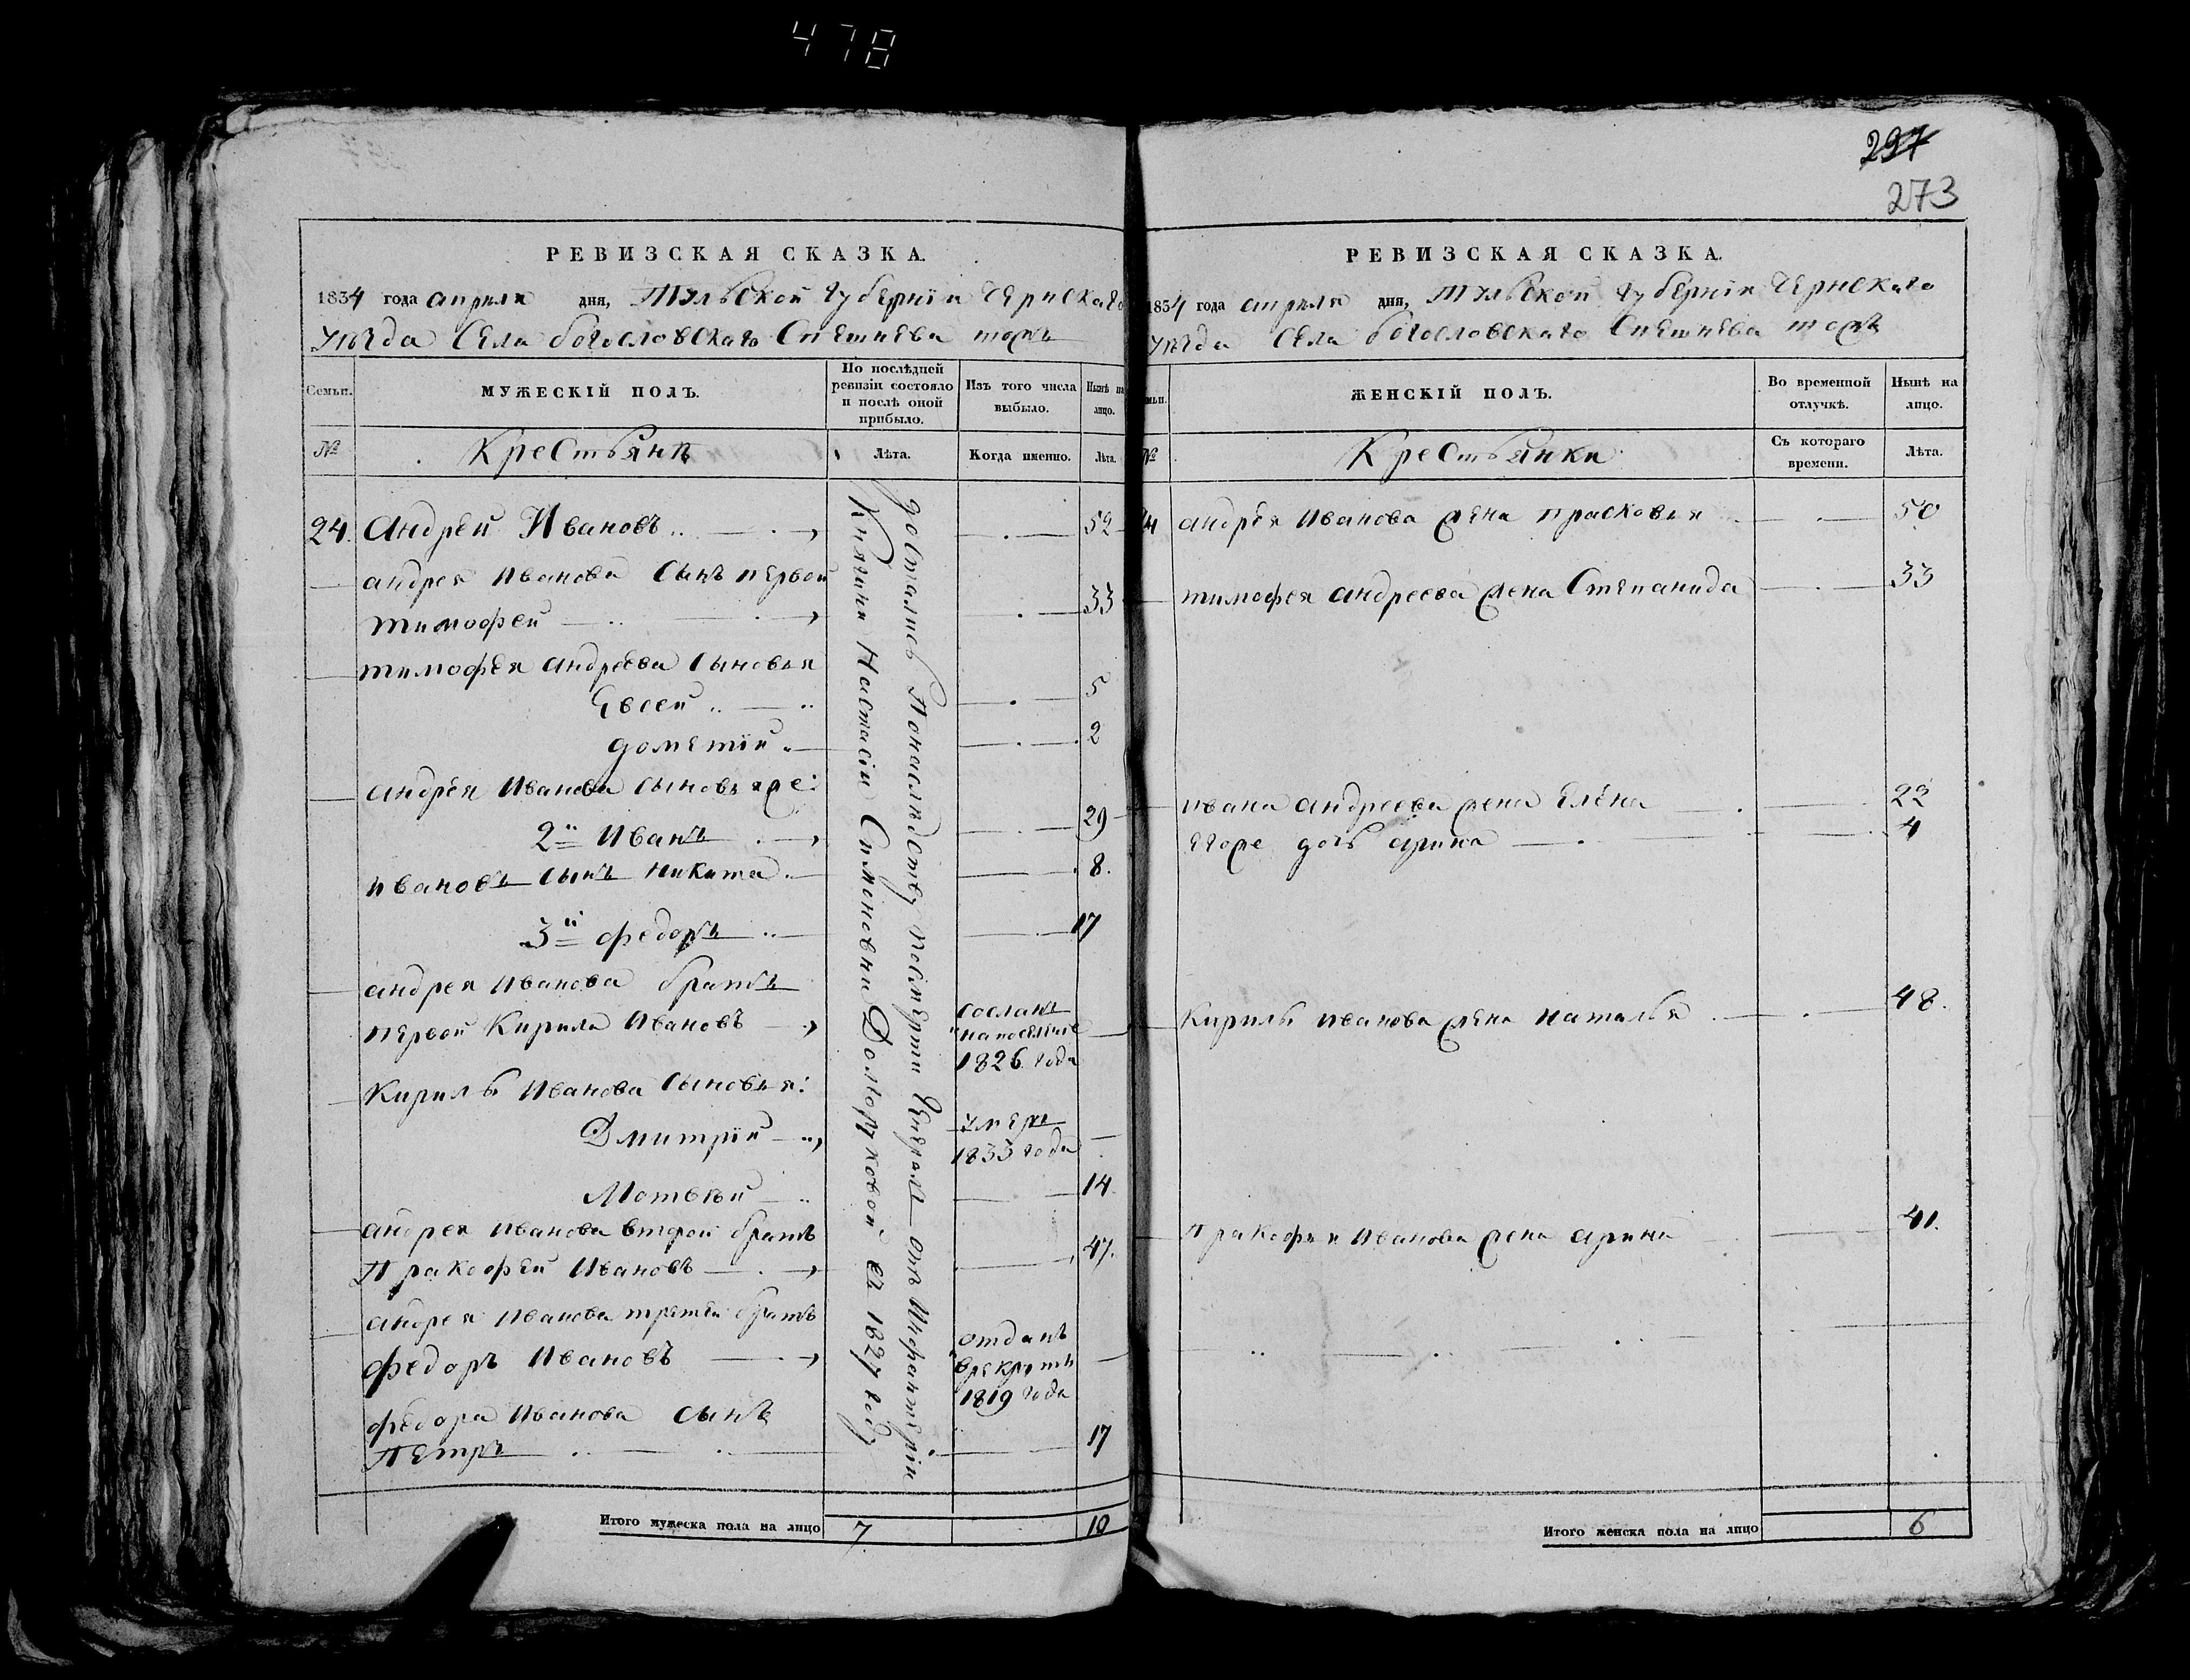 478
297
273
РЕВИЗСКАЯ СКАЗКА.
1834 года апреля дня, Тульской губернїи Чернскаго
уѣзда Села богословскаго Спешнева тожъ
Семьи. МУЖЕСКІЙ ПОЛЪ. По послѣдней ревизіи состояло и послѣ оной прибыло. Изъ того числа выбыло. Нынѣ на лицо.
№ Крестьянъ Лѣта. Когда именно. Лѣта.
24. Андрей Ивановъ 52
андрея Иванова Сынъ первой
тимофей 33
тимофея андреева Сыновья
Евсей 5
дометїй 2
андрея Иванова Сыновья же:
2й Иванъ 29
Ивановъ Сынъ Никита 8.
3й федоръ 17
андрея Иванова братъ
первой Кирила Ивановъ
сосланъ
на поселение
1826 года
Кирилы Иванова Сыновья:
Дмитрїй
умеръ
1833 года
Матвей 14
андрея Иванова второй братъ
Пракофей Ивановъ 47.
андрея Иванова третей братъ
федоръ Ивановъ
отданъ
врекруты
1819 года
федора Иванова Сынъ
Петръ 17
достались Понаследству посмерти Генерала отъ Инфантерїи
Княгини Настасїи Сименовны Долгоруковой въ 1827 году
Итого мужеска пола на лицо 7 10
РЕВИЗСКАЯ СКАЗКА.
1834 года апреля дня, Тульской губернїи Чернскаго
уѣзда Села богословскаго Спешнева тожъ
ЖЕНСКІЙ ПОЛЪ. Во временной отлучкѣ. Нынѣ на лицо.
№ Крестьянки Съ котораго времени. Лѣта.
андрея Иванова жена прасковья 50
тимофея андреева жена Степанида 33
ивана андреева жена Елена 22
Егоже дочь арина 4
Кирилы Иванова жена Наталья 48.
Пракофья Иванова жена арина 41.
Итого женска пола на лицо 6